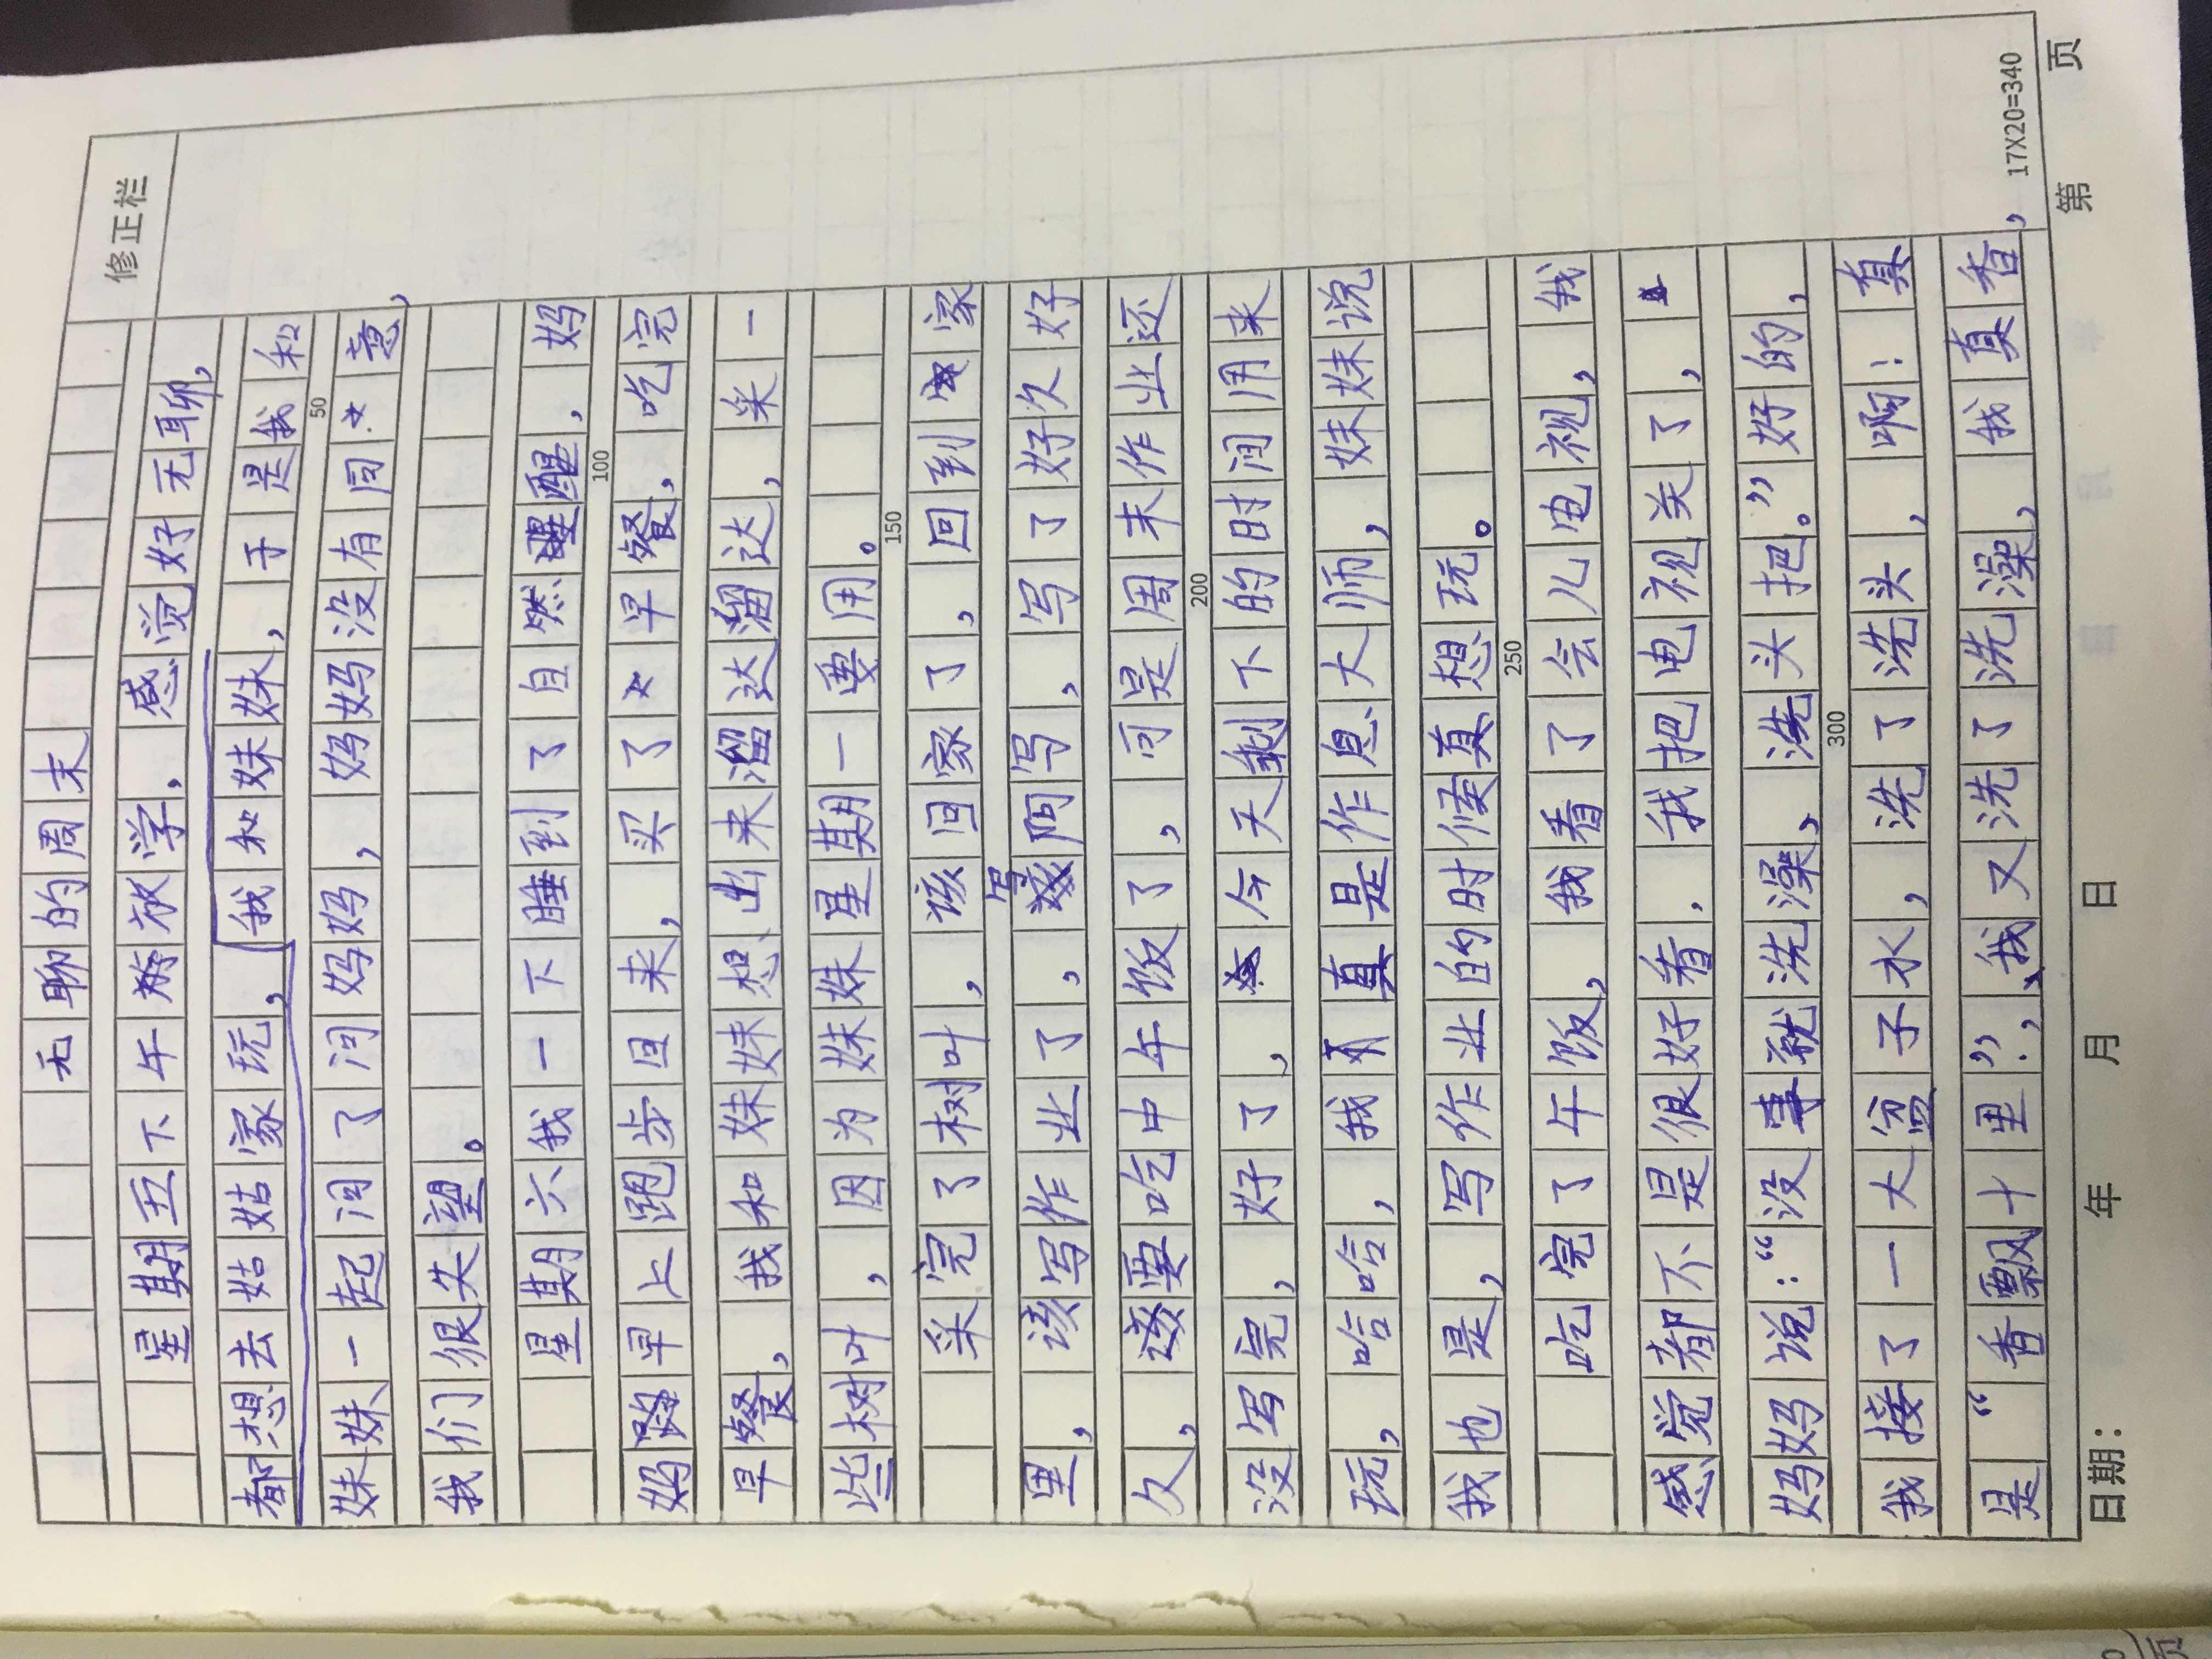 修正栏
无聊的周末
星期五下午放学，感觉好无聊，
都想去姑姑家玩，我和妹妹，于是我和
妹妹一起问了问妈妈，妈妈没有同意，
我们很失望。
星期六我一下睡到了自然醒，妈
妈跑早上跑步回来，买了早餐，吃完
早餐，我和妹妹想出来溜达溜达，采一
些树叶，因为妹妹星期一要用。
采完了树叶，该回家了，回到家
里，该写作业了，写阿写，写了好久好
久，该要吃中午饭了，可是周末作业还
没写完，好了，今天剩下的时间用来
玩，哈哈，我真是作息大师，妹妹说
我也是，写作业的时候真想玩。
吃完了午饭，我看了会儿电视，我
感觉都不是很好看，我把电视关了，
妈妈说：“没事就洗澡，洗头把。”好的，
我接了一大盆子水，洗了洗头，啊！真
是“香飘十里”，我又洗了洗澡，我真香，
50
100
150
200
250
300
17X20=340
日期： 年 月 日 第 页